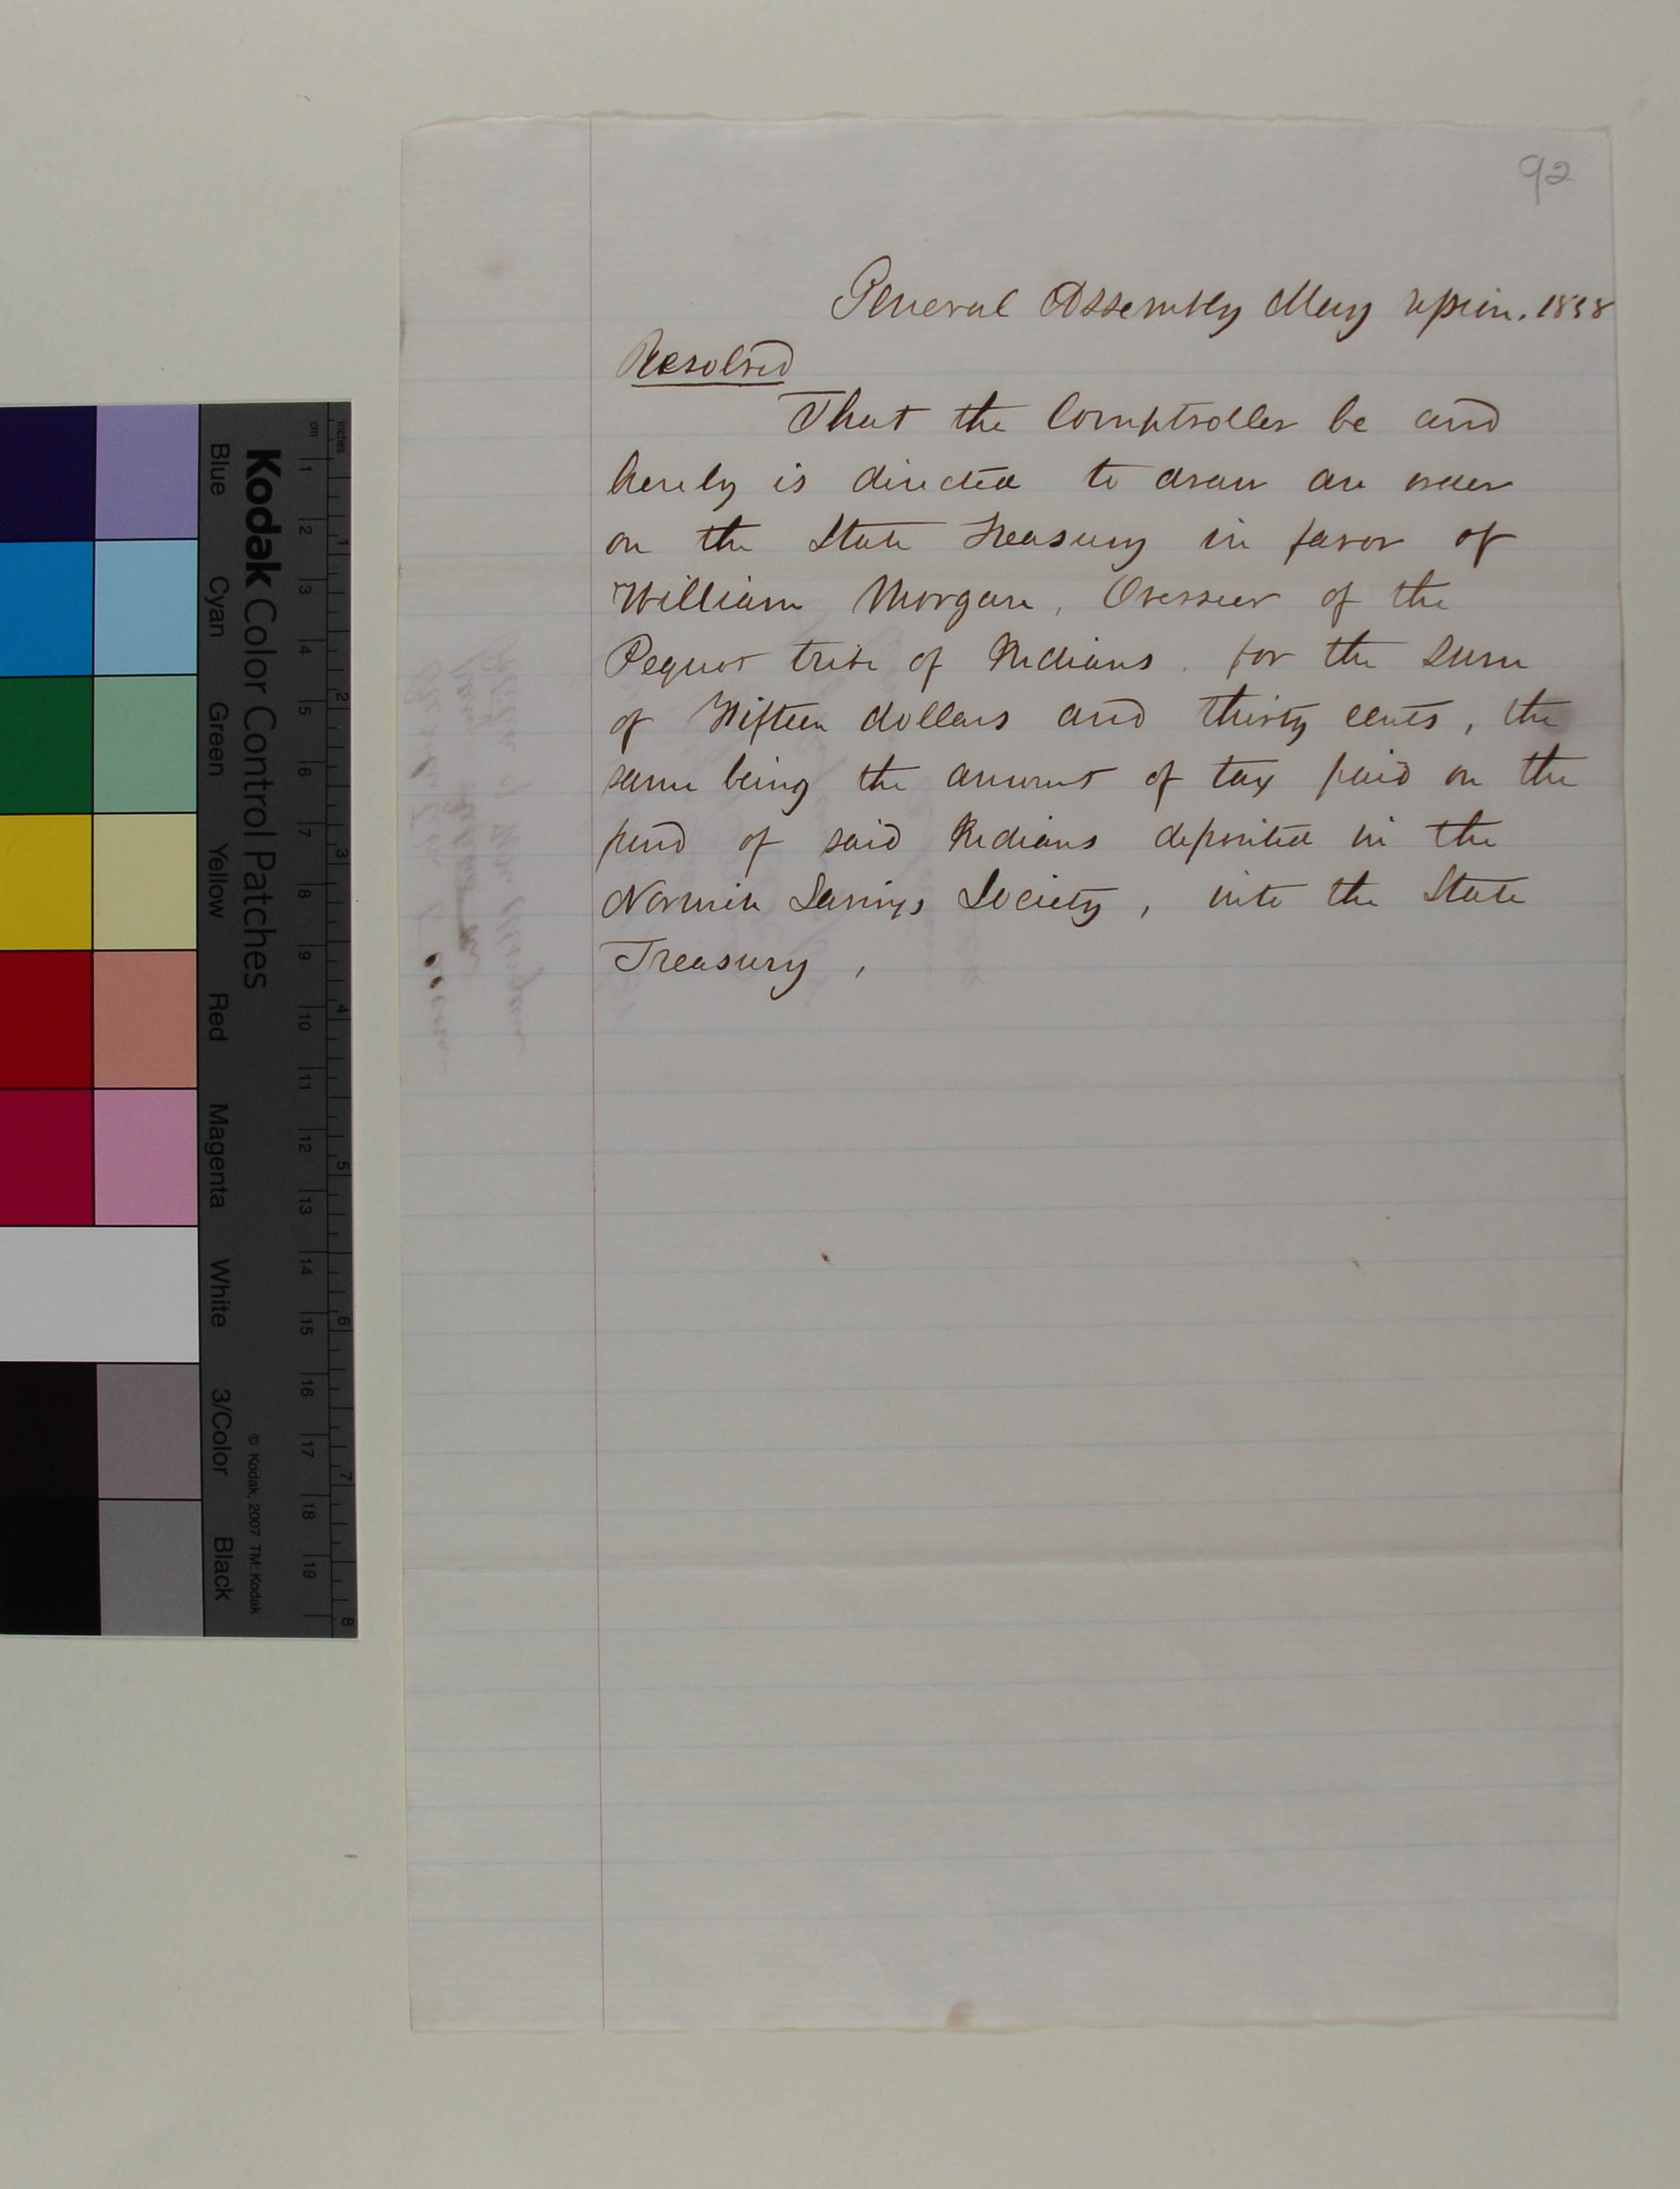 92
General Assembly May Session. 1858
Resolved
That the Comptroller be and
hereby is directed to draw an order
on the State Treasury in favor of
William Morgan, Overseer of the
Pequot tribe of Indians. for the sum
of Fifteen dollars and thirty cents, the
same being the amount of tax paid on the
fund of said Indians deposited in the
Norwich Savings Society, into the State
Treasury,
Kodak Color Control Patches
© Kodak, 2007 TM: Kodak
Blue Cyan Green Yellow Red Magenta White 3/Color Black
cm 1 2 3 4 5 6 7 8 9 10 11 12 13 14 15 16 17 18 19
inches 1 2 3 4 5 6 7 8